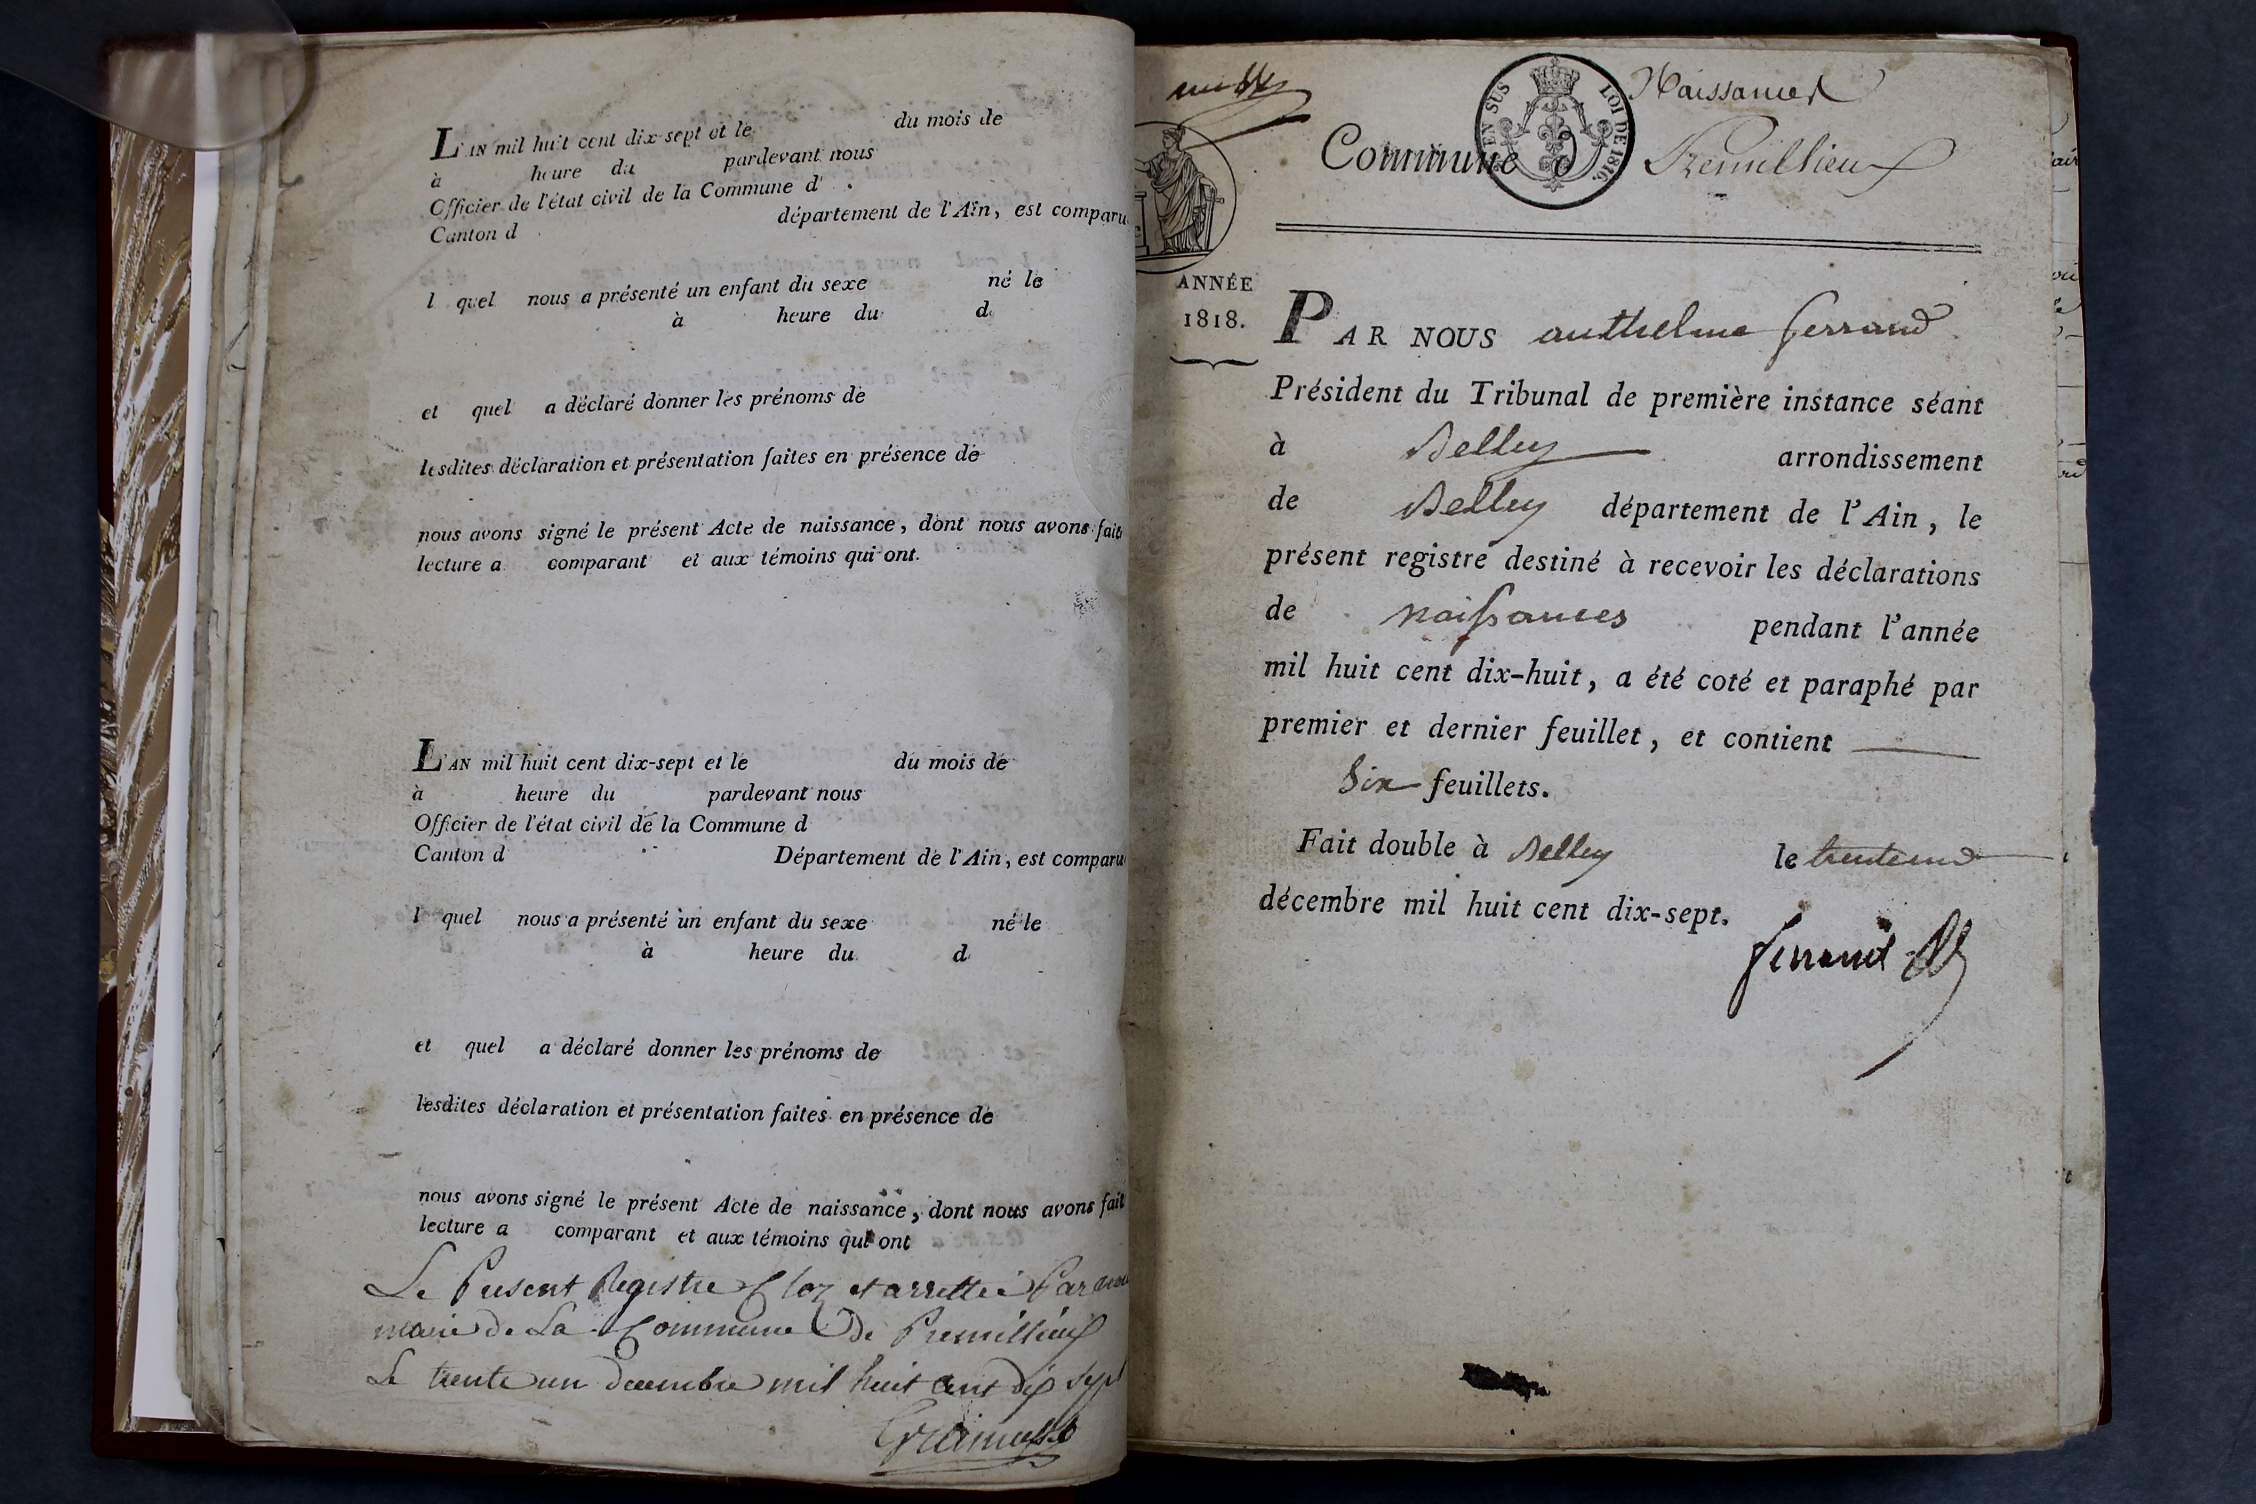 L'AN mil huit cent dix-sept et le du mois de
à heure du pardevant nous
Officier de l'état civil de la Commune d'
Canton d département de l'Ain, est comparu
l quel nous a présenté un enfant du sexe né le
à heure du d
et quel a déclaré donner les prénoms de
lesdites déclaration et présentation faites en présence de
nous avons signé le présent Acte de naissance, dont nous avons fait
lecture a comparant et aux témoins qui ont.
L'AN mil huit cent dix-sept et le du mois de
à heure du pardevant nous
Officier de l'état civil de la Commune d
Canton d Département de l'Ain, est comparu
l quel nous a présenté un enfant du sexe né le
à heure du d
et quel a déclaré donner les prénoms de
lesdites déclaration et présentation faites en présence de
nous avons signé le présent Acte de naissance, dont nous avons fait
lecture a comparant et aux témoins qui ont
Le Present Registre Cloz et arretté Par nous
maire de La Commune De Premillieux
Le trente un decembre mil huit cent dix sept
Naissances
EN SUS LOI DE 1816.
Commune d Premillieux
ANNÉE
1818.
PAR NOUS anthelme ferrand
Président du Tribunal de première instance séant
à Belley arrondissement
de Belley département de l'Ain, le
présent registre destiné à recevoir les déclarations
de naissances pendant l'année
mil huit cent dix-huit, a été coté et paraphé par
premier et dernier feuillet, et contient
Six feuillets.
Fait double à Belley le trente un
décembre mil huit cent dix-sept.
ferrand